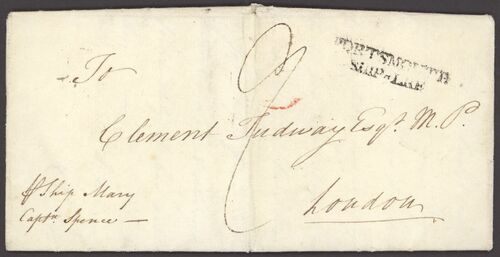 To
PORTSMOUTH
SHIP-LRE
Clement Tudway Esqr. M.P.
London
pr Ship Mary
Captn. Spence